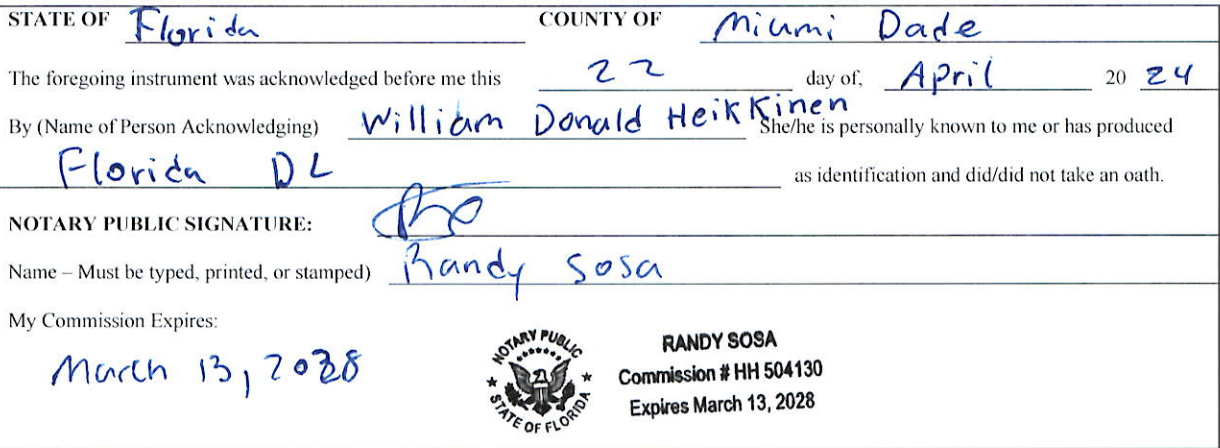 STATE OF Florida COUNTY OF Miami Dade
The foregoing instrument was acknowledged before me this 22 day of, April 20 24
By (Name of Person Acknowledging) William Donald Heikkinen She/he is personally known to me or has produced
Florida DL as identification and did/did not take an oath.
NOTARY PUBLIC SIGNATURE:
Name – Must be typed, printed, or stamped) Randy Sosa
My Commission Expires:
March 13, 2028
NOTARY PUBLIC
STATE OF FLORIDA
RANDY SOSA
Commission # HH 504130
Expires March 13, 2028